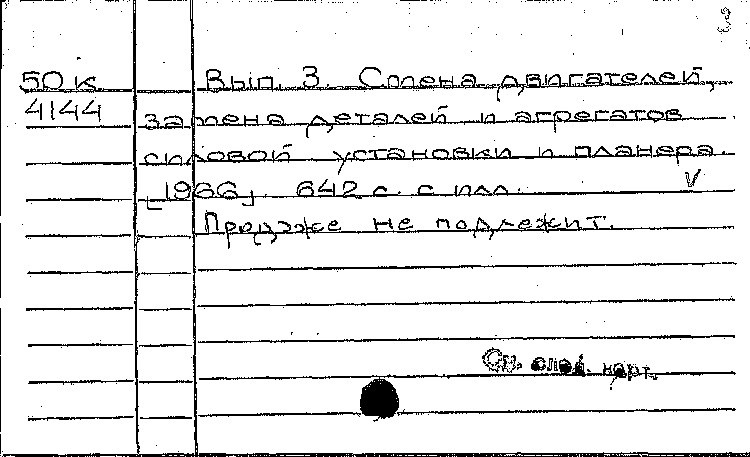 50 к Вып. 3. Смена двигателей,
4144 замена деталей и агрегатов
силовой установки и планера.
[1966]. 642 с. с илл. V
Продаже не подлежит.
См. след. карт.